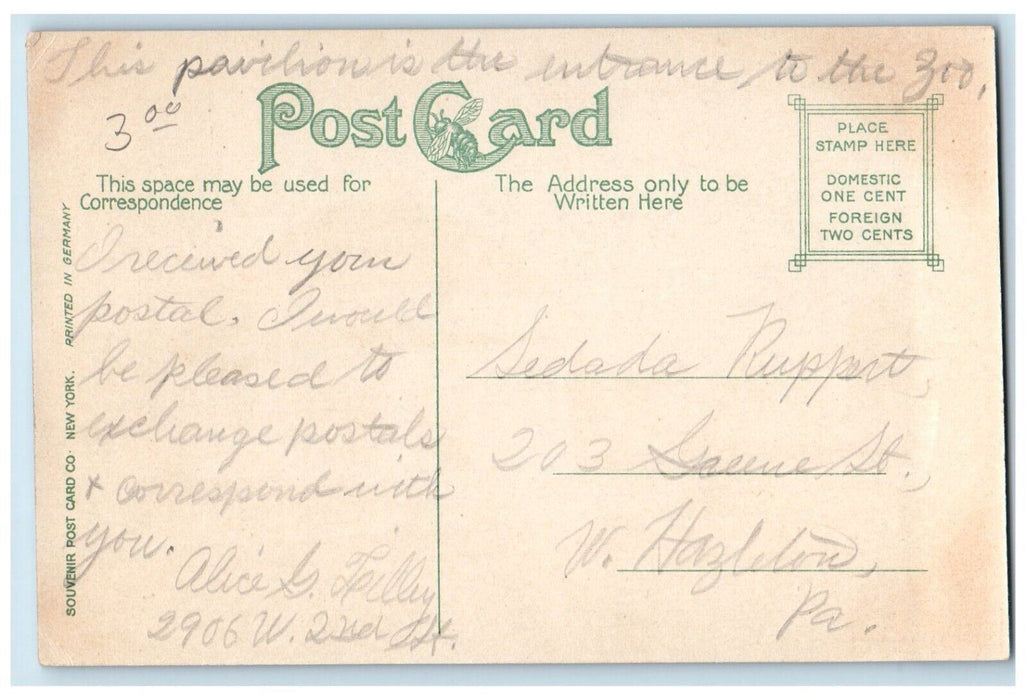 This pavilion is the entrance to the Zoo.
3 00
Post Card
This space may be used for
Correspondence
The Address only to be
Written Here
PLACE
STAMP HERE
DOMESTIC
ONE CENT
FOREIGN
TWO CENTS
SOUVENIR POST CARD CO. NEW YORK. PRINTED IN GERMANY
I received your
postal. I would
be pleased to
exchange postals
& correspond with
you.
Alice G.
2906 W. 22nd St.
Sedada Ruppert,
203 Greene St.,
W. Hazleton,
Pa.